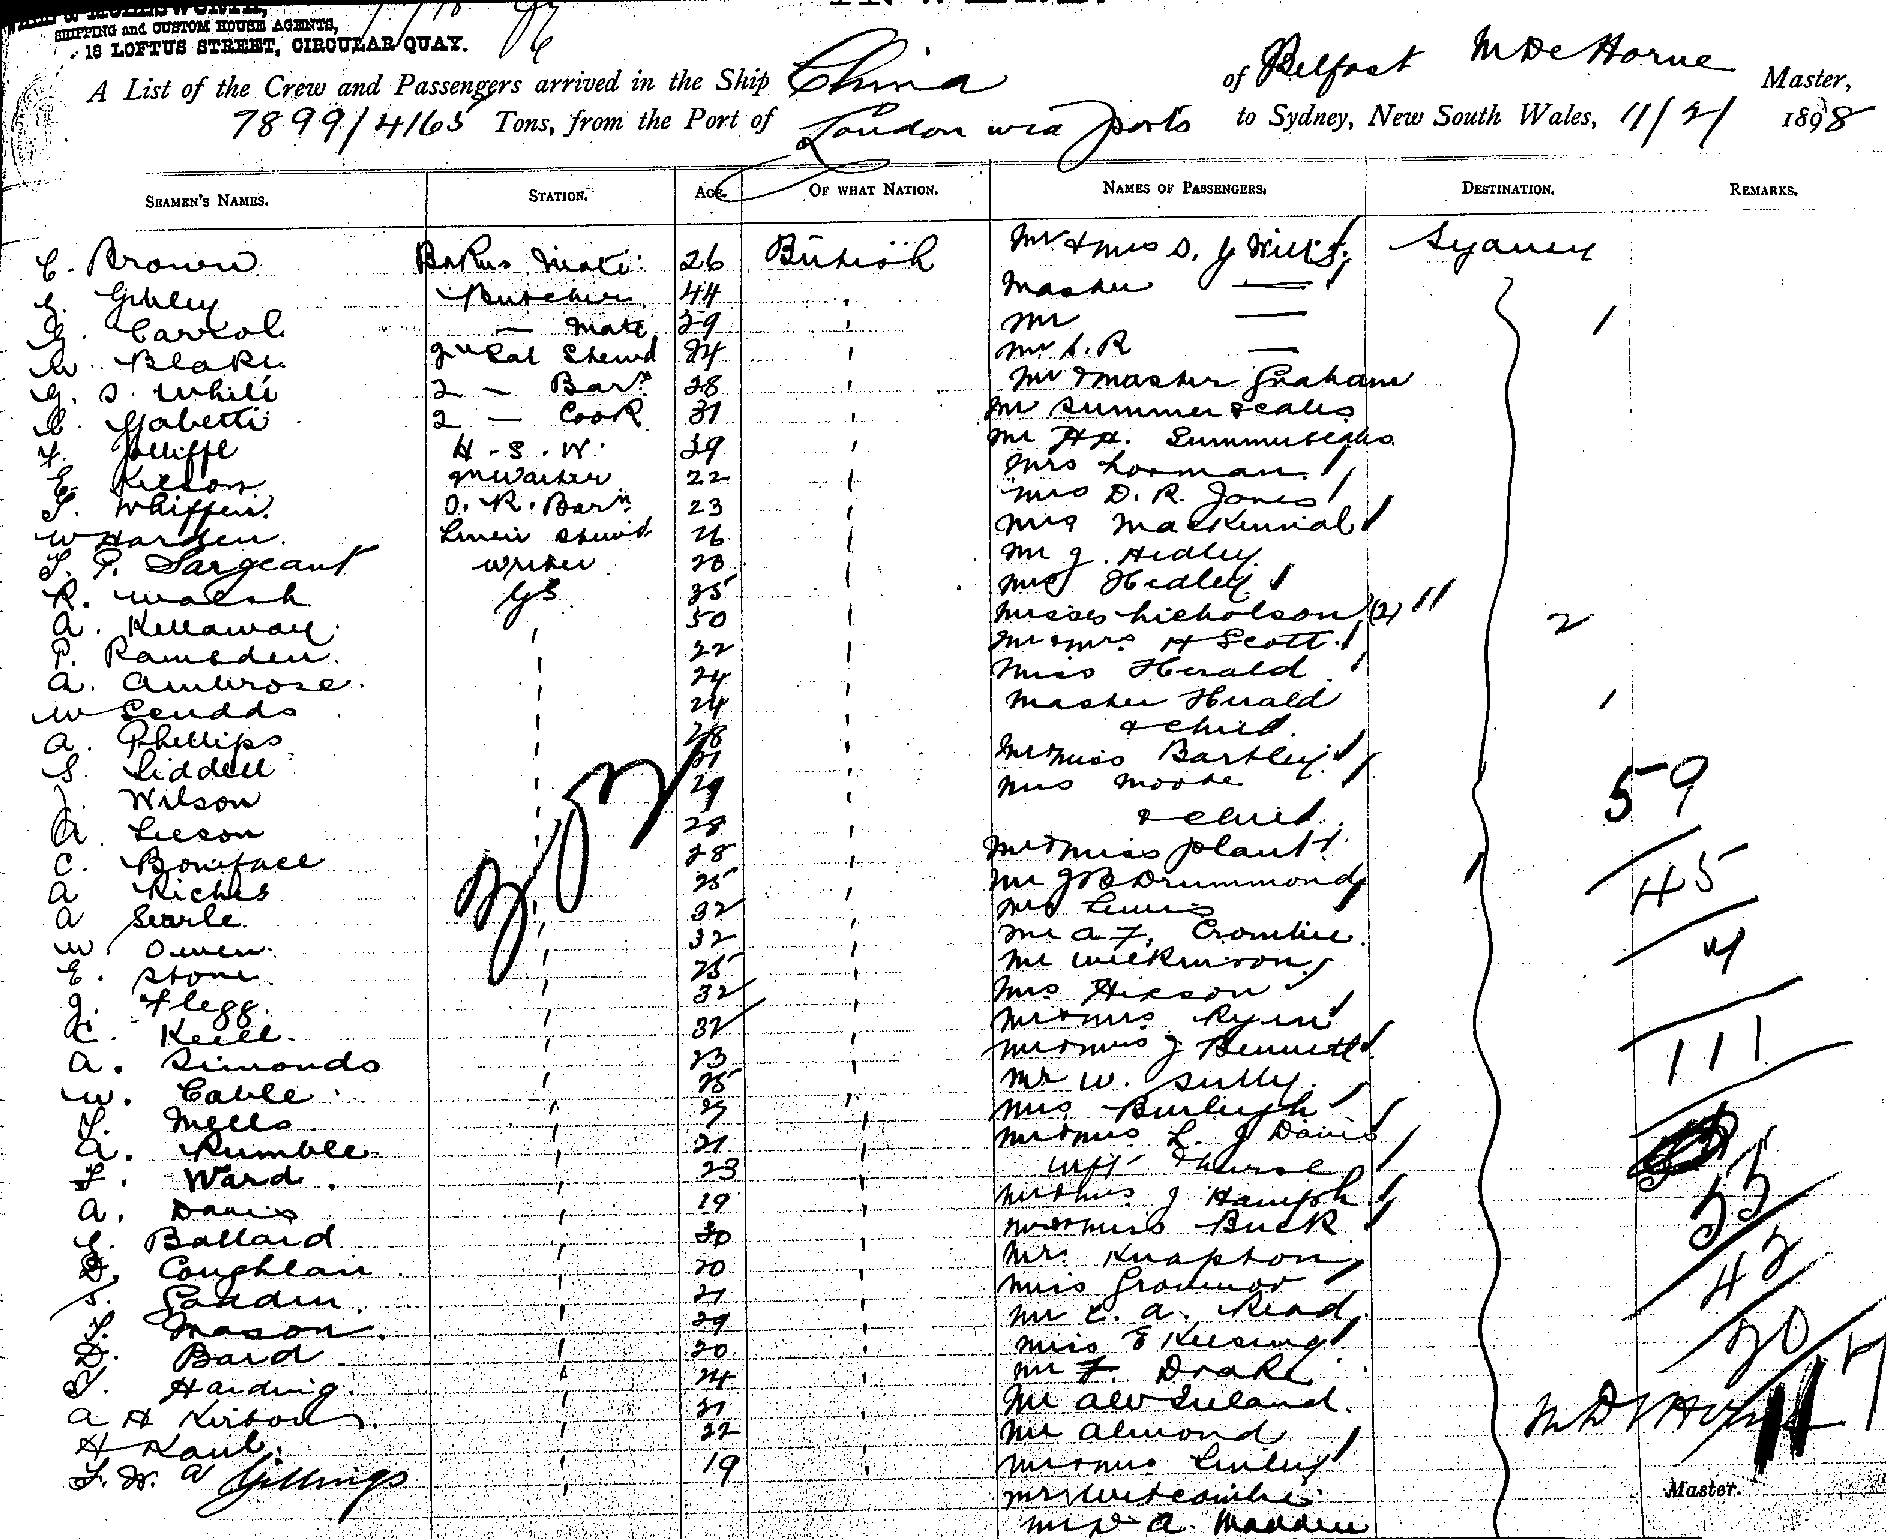 SHIPPING and CUSTOM HOUSE AGENTS,
18 LOFTUS STREET, CIRCULAR QUAY.
A List of the Crew and Passengers arrived in the Ship China of Belfast M De Horne Master,
7899/4165 Tons, from the Port of London via ports to Sydney, New South Wales, 11/2/ 1898
SEAMEN'S NAMES. STATION. AGE. OF WHAT NATION. NAMES OF PASSENGERS. DESTINATION. REMARKS.
C. Brown Bakers Mate 26 British Mr & Mrs S. J Wills Sydney
Gibley Butcher 44 Master —
G. Carrol — Mate 29 Mr — 1
W Blake 2nd Sal Stewd 24 Mr S. R —
G. S. White 2 — Barn 28 Mr & Master Graham
C. Gabetti 2 — Cook 31 Mr Summerscales
F. Jolliffe H. S. W. 39 Mr HH. Summerscales
E. Kelson 22 Mrs Lorman
F. Whiffin O. R. Barn 23 Mrs D. R. Jones
W Harden Linen Stewd 26 Mrs MacKennal
F. P. Sargeant Writer 23 Mr J. Hedley
R. Walsh GS 35 Mrs Hedley
A. Kellaway 50 Misses Nicholson (2) 2
P. Ramsden 22 Mr & Mrs H Scott
A. Ambrose 24 Miss Herald
W Scudds 24 Master Herald 1
A. Phillips 28 & child
S. Liddell 21 Mr & Miss Bartley
J. Wilson 29 Mrs Moore 59
A. Leeson 28 & child
C. Boniface 28 Mr & Miss Plant
A Riches 25 Mr J B Drummond 45
A Searle 32 Mrs Lewis
W Owen 32 Mr A F. Crombie 4
E. Stone 25 Mr Wilkinson
J. Flegg 32 Mrs Hixson
C. Keell 32 Mr & Mrs Ryrie
A. Simonds 23 Mr & Mrs J Bennett 111
W. Cable 25 Mr W. Sully
F. Mells 27 Mrs Burleigh
A. Rumble 21 Mr & Mrs L. J Davis
F. Ward 23 Inft & Nurse
A. Davis 19 Mr & Mrs J Hamph 55
G. Ballard 30 Mr & Miss Buck
D. Coughlan 20 Mr. Knapton 42
S. 21 Miss Grosvenor
F. Mason 29 Mr C. A. Read 20
D. Bard 20 Miss E Keesing
T. Harding 24 Mr F. Drake 117
A H Kirton 21 Mr Alw Ireland M De Horne
H Kaul 22 Mr Almond
F. W. A Gillings 19 Mr & Mrs Linley Master.
Mr Witcombe
Mr D A. Madden